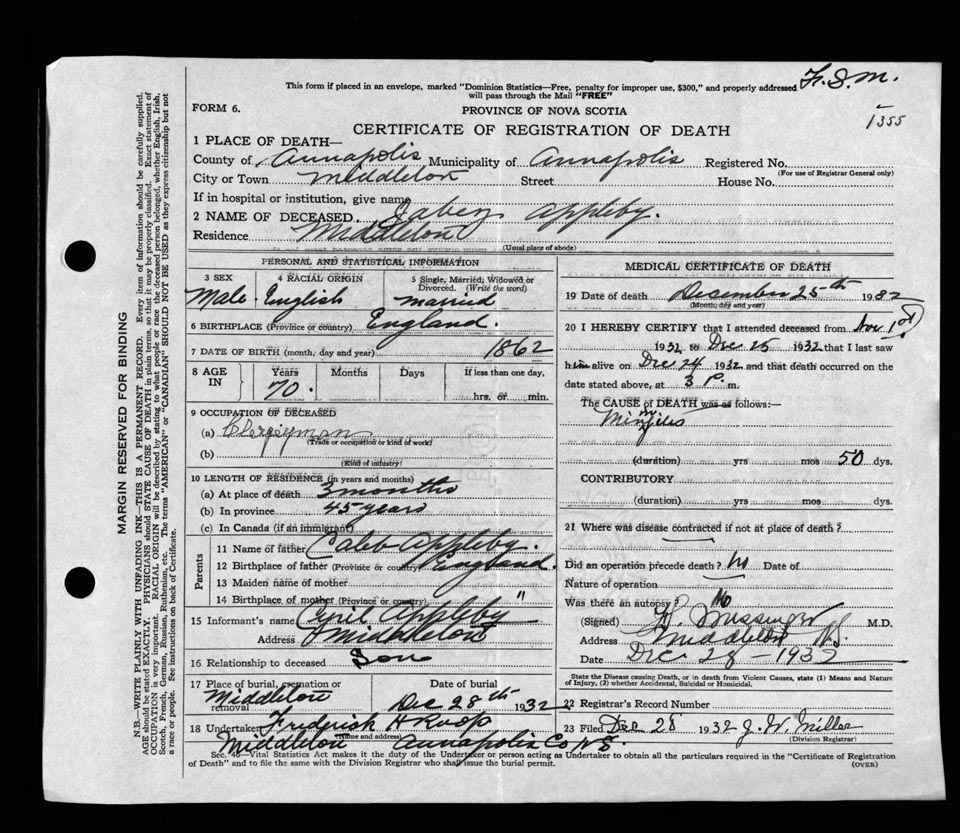 F.S.M.
This form if placed in an envelope, marked "Dominion Statistics—Free, penalty for improper use, $300," and properly addressed
will pass through the Mail "FREE"
1355
FORM 6.
PROVINCE OF NOVA SCOTIA
CERTIFICATE OF REGISTRATION OF DEATH
1 PLACE OF DEATH—
County of Annapolis Municipality of Annapolis Registered No.
(For use of Registrar General only)
City or Town Middleton Street House No.
If in hospital or institution, give name
2 NAME OF DECEASED. Jabez Appleby.
Residence Middleton
(Usual place of abode)
PERSONAL AND STATISTICAL INFORMATION
3 SEX 4 RACIAL ORIGIN 5 Single, Married, Widowed or Divorced. (Write the word)
Male. English married
6 BIRTHPLACE (Province or country) England.
7 DATE OF BIRTH (month, day and year) 1862
8 AGE IN Years Months Days If less than one day,
70. hrs. or min.
9 OCCUPATION OF DECEASED
(a) Clergyman
(Trade or occupation or kind of work)
(b)
(Kind of industry)
10 LENGTH OF RESIDENCE (in years and months)
(a) At place of death 3 months
(b) In province 45 years
(c) In Canada (if an immigrant)
Parents
11 Name of father Caleb Appleby.
12 Birthplace of father (Province or country) England.
13 Maiden name of mother
14 Birthplace of mother (Province or country) "
15 Informant's name Cyril Appleby
Address Middleton
16 Relationship to deceased Son
17 Place of burial, cremation or removal Date of burial
Middleton Dec 28th 1932
18 Undertaker Frederick H Roop
(Name and address)
Middleton Annapolis Co N.S.
MEDICAL CERTIFICATE OF DEATH
19 Date of death December 25th 1932
(Month, day and year)
20 I HEREBY CERTIFY that I attended deceased from Nov 1st
1932 to Dec 25 1932 that I last saw
him alive on Dec 24 1932 and that death occurred on the
date stated above, at 3 P. m.
The CAUSE of DEATH was as follows:—
(duration) yrs mos 50 dys.
CONTRIBUTORY
(duration) yrs mos dys.
21 Where was disease contracted if not at place of death?
Did an operation precede death? No Date of
Nature of operation
Was there an autopsy? No
(Signed) M.D.
Address Middleton N.S.
Date Dec 28 - 1932
State the Disease causing Death, or in death from Violent Causes, state (1) Means and Nature
of Injury, (2) whether Accidental, Suicidal or Homicidal.
22 Registrar's Record Number
23 Filed Dec 28 1932 J. W. Miller
(Division Registrar)
Sec. 46—Vital Statistics Act makes it the duty of the Undertaker or person acting as Undertaker to obtain all the particulars required in the "Certificate of Registration
of Death" and to file the same with the Division Registrar who shall issue the burial permit. (OVER)
MARGIN RESERVED FOR BINDING
N.B.—WRITE PLAINLY WITH UNFADING INK—THIS IS A PERMANENT RECORD. Every item of information should be carefully supplied.
AGE should be stated EXACTLY. PHYSICIANS should STATE CAUSE OF DEATH in plain terms, so that it may be properly classified. Exact statement of
OCCUPATION is very important. RACIAL ORIGIN will be described by stating to what people or race the deceased person belonged, whether English, Irish,
Scotch, French, German, Russian, Ruthenian, etc. The terms "AMERICAN" or "CANADIAN" SHOULD NOT BE USED as they express citizenship but not
a race or people. See instructions on back of Certificate.